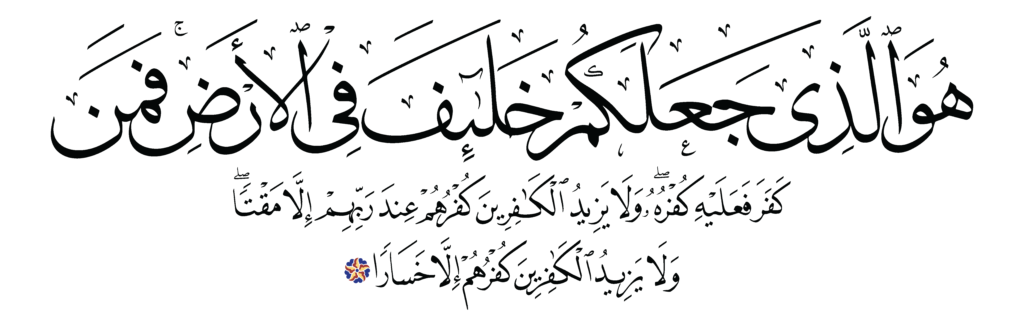 هُوَ ٱلَّذِى جَعَلَكُمْ خَلَـٰٓئِفَ فِى ٱلْأَرْضِ ۚ فَمَن
كَفَرَ فَعَلَيْهِ كُفْرُهُۥ ۖ وَلَا يَزِيدُ ٱلْكَـٰفِرِينَ كُفْرُهُمْ عِندَ رَبِّهِمْ إِلَّا مَقْتًا ۖ
وَلَا يَزِيدُ ٱلْكَـٰفِرِينَ كُفْرُهُمْ إِلَّا خَسَارًا